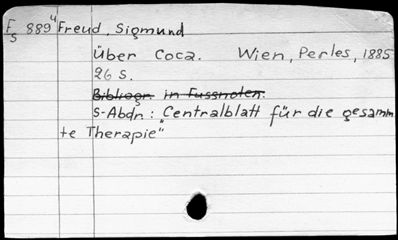 F 889" Freud, Sigmund
S
Über Coca. Wien, Perles, 1885
26 S.
Bibliogr. in Fussnoten.
S-Abdr.: "Centralblatt für die gesamm
te Therapie"